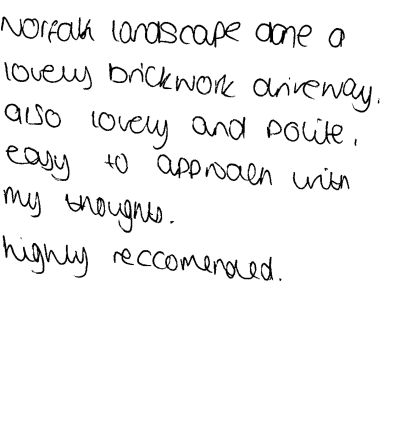 Norfolk landscape done a
lovely brickwork driveway.
also lovely and polite.
easy to approach with
my thoughts.
highly reccomended.